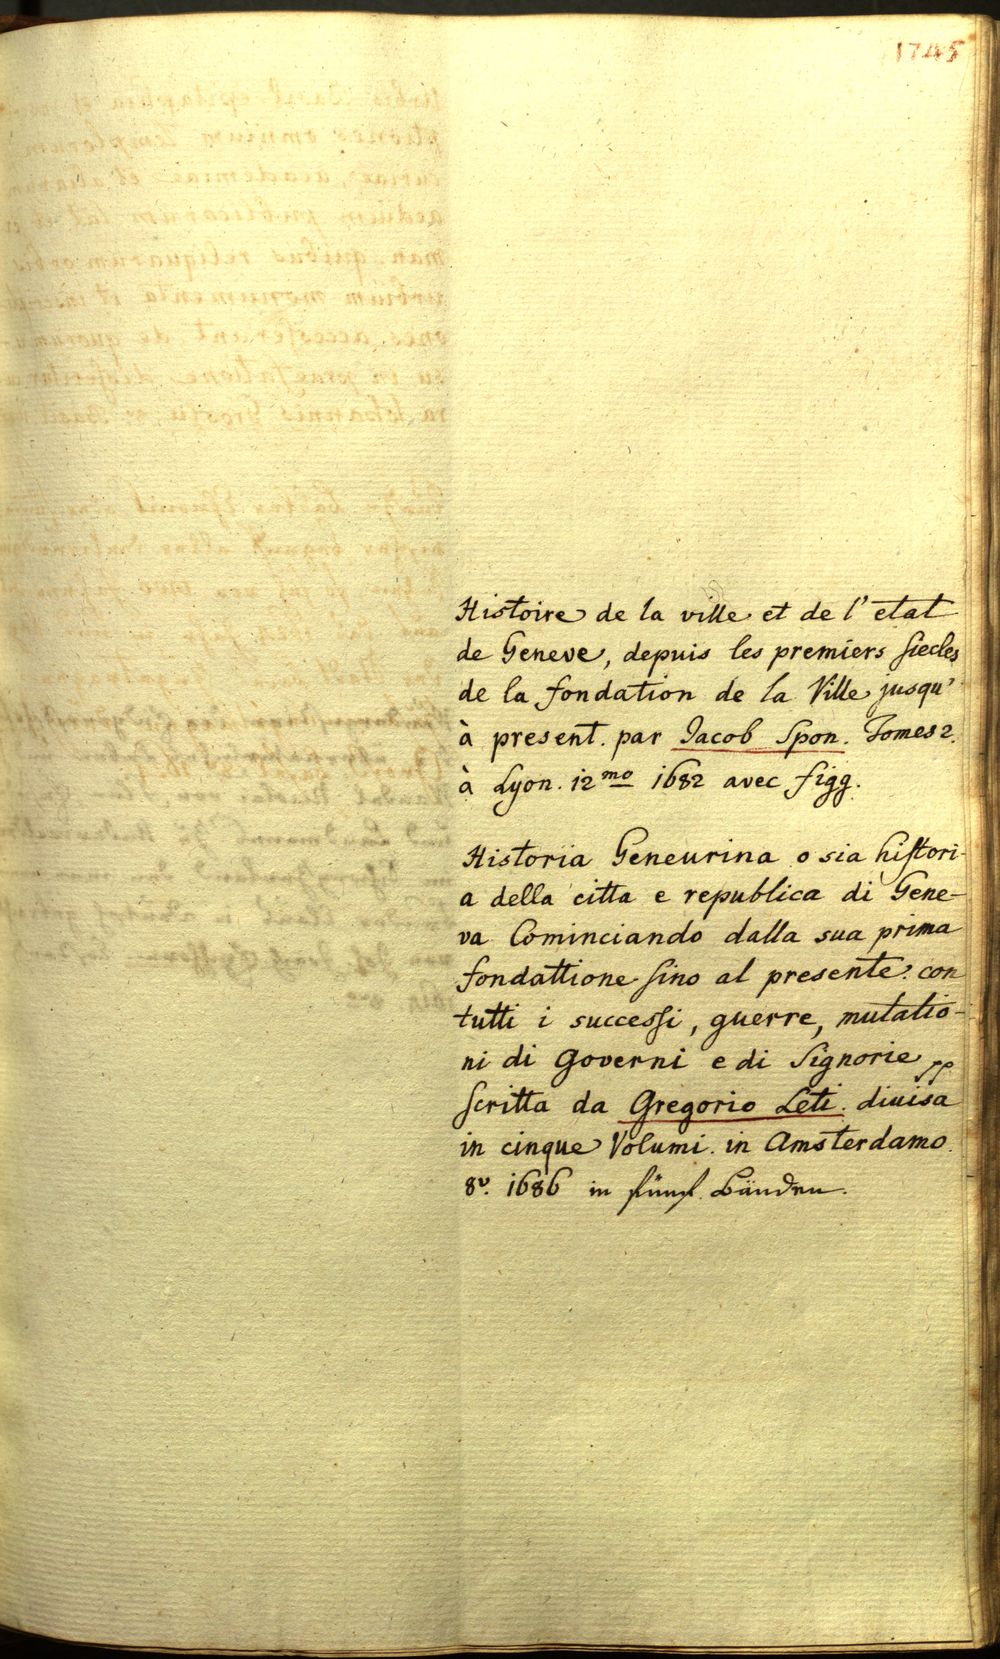 1745
Histoire de la ville et de l'etat
de Geneve, depuis les premiers siecles
de la fondation de la Ville jusqu'
à present. par Jacob Spon. Tomes 2.
à Lyon. 12mo 1682 avec figg.
Historia Geneurina o sia histori-
a della citta e republica di Gene-
va Cominciando dalla sua prima
fondattione sino al presente. con
tutti i successi, guerre, mutatio-
ni di Governi e di Signorie pp
scritta da Gregorio Leti. diuisa
in cinque Volumi. in Amsterdamo.
8v. 1686 in fünf Bänden.